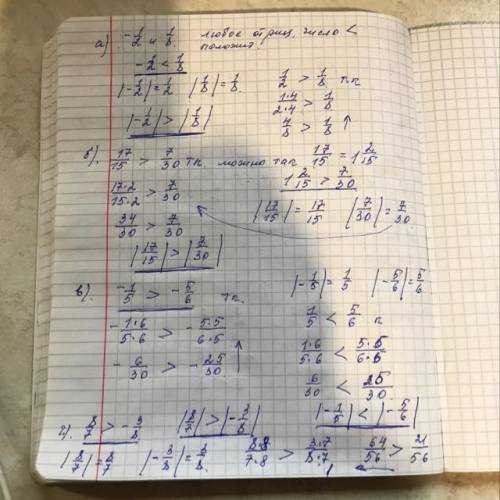 а) -1/2 и 1/8. любое отриц. число <
положит.
-1/2 < 1/8
|-1/2| = 1/2 |1/8| = 1/8. 1/2 > 1/8 т.к
1·4/2·4 > 1/8
|-1/2| > |1/8| 4/8 > 1/8 ↑
б). 17/15 > 7/30 т.к. можно так 17/15 = 1 2/15
17·2/15·2 > 7/30 1 2/15 > 7/30
34/30 > 7/30 |17/15| = 17/15 |7/30| = 7/30
|17/15| > |7/30|
в). -1/5 > -5/6 т.к. |-1/5| = 1/5 |-5/6| = 5/6
-1·6/5·6 > -5·5/6·5 1/5 < 5/6
-6/30 > -25/30 ↑ 1·6/5·6 < 5·5/6·5
6/30 < 25/30
г). 8/7 > -3/8 |8/7| > |-3/8| |-1/5| < |-5/6|
|8/7| = 8/7 |-3/8| = 3/8. 8·8/7·8 > 3·7/8·7 64/56 > 21/56